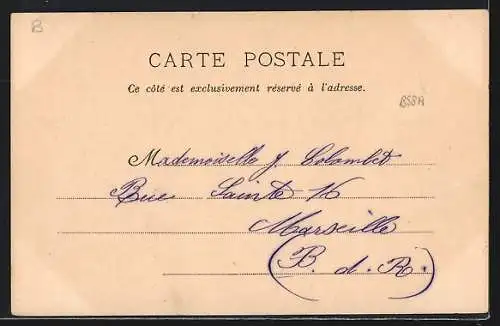 B
CARTE POSTALE
Ce côté est exclusivement réservé à l'adresse.
BSBA
Mademoiselle J. Colombet
Rue Sainte 16
Marseille
(B. d. R.)